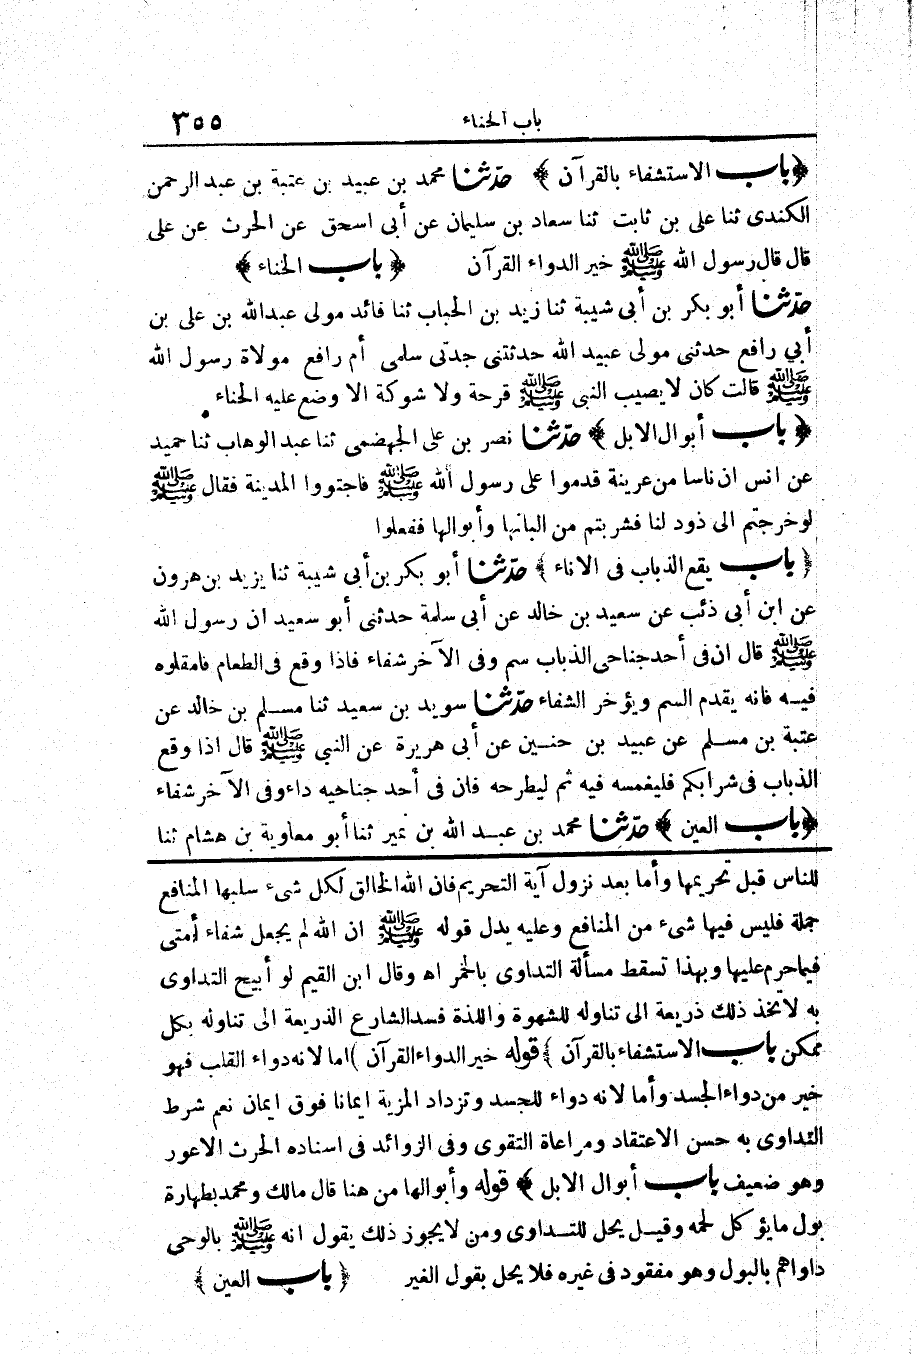 باب الحناء ٣٥٥
﴿باب الاستشفاء بالقرآن﴾ حدّثنا محمد بن عبيد بن عتبة بن عبد الرحمن
الكندى ثنا على بن ثابت ثنا سعاد بن سليمان عن أبى اسحق عن الحرث عن على
قال قال رسول الله ﷺ خير الدواء القرآن ﴿باب الحناء﴾
حدّثنا أبو بكر بن أبى شيبة ثنا زيد بن الحباب ثنا فائد مولى عبدالله بن على بن
أبي رافع حدثنى مولى عبيد الله حدثتنى جدتى سلمى أم رافع مولاة رسول الله
ﷺ قالت كان لايصيب النبى ﷺ قرحة ولا شوكة الا وضع عليه الحناء
﴿باب أبوال الابل﴾ حدّثنا نصر بن على الجهضمى ثنا عبد الوهاب ثنا حميد
عن انس ان ناسا من عرينة قدموا على رسول الله ﷺ فاجتووا المدينة فقال ﷺ
لوخرجتم الى ذود لنا فشربتم من البانها وأبوالها ففعلوا
﴿باب يقع الذباب فى الاناء﴾ حدّثنا أبو بكر بن أبى شيبة ثنا يزيد بن هرون
عن ابن أبى ذئب عن سعيد بن خالد عن أبى سلمة حدثنى أبو سعيد ان رسول الله
ﷺ قال ان فى أحد جناحى الذباب سم وفى الآخر شفاء فاذا وقع فى الطعام فامقلوه
فيه فانه يقدم السم ويؤخر الشفاء حدّثنا سويد بن سعيد ثنا مسلم بن خالد عن
عتبة بن مسلم عن عبيد بن حنين عن أبى هريرة عن النبى ﷺ قال اذا وقع
الذباب فى شرابكم فليغمسه فيه ثم ليطرحه فان فى أحد جناحيه داء وفى الآخر شفاء
﴿باب العين﴾ حدّثنا محمد بن عبد الله بن نمير ثنا أبو معاوية بن هشام ثنا
للناس قبل تحريمها وأما بعد نزول آية التحريم فان الله الخالق لكل شىء سلبها المنافع
جملة فليس فيها شىء من المنافع وعليه يدل قوله ﷺ ان الله لم يجعل شفاء أمتى
فيما حرم عليها وبهذا تسقط مسألة التداوى بالخمر اه وقال ابن القيم لو أبيح التداوى
به لاتخذ ذلك ذريعة الى تناوله للشهوة واللذة فسد الشارع الذريعة الى تناوله بكل
ممكن باب الاستشفاء بالقرآن﴾ قوله خير الدواء القرآن) اما لانه دواء القلب فهو
خير من دواء الجسد وأما لانه دواء للجسد وتزداد المزية ايمانا فوق ايمان نعم شرط
التداوى به حسن الاعتقاد ومراعاة التقوى وفى الزوائد فى اسناده الحرث الاعور
وهو ضعيف باب أبوال الابل﴾ قوله وأبوالها من هنا قال مالك ومحمد بطهارة
بول مايؤكل لحمه وقيل يحل للتداوى ومن لايجوز ذلك يقول انه ﷺ بالوحى
داواهم بالبول وهو مفقود فى غيره فلا يحل بقول الغير ﴿باب العين﴾